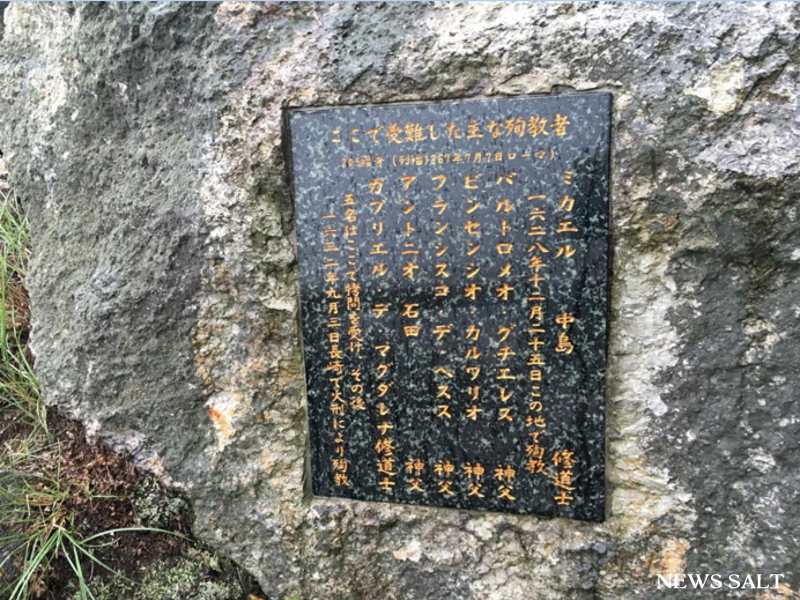 ここで受難した主な殉教者
205福者 (列福1867年7月7日ローマ)
ミカエル 中島 修道士
一六二八年十二月二十五日この地で殉教
バルトロメオ・グチエレズ 神父
ビンセンシオ・カルワリオ 神父
フランシスコ・デ・ヘスス 神父
アントニオ 石田 神父
ガブリエル・デ・マグダレナ修道士
五名はここで拷問を受け、その後
一六三二年九月三日長崎で火刑により殉教
NEWS SALT